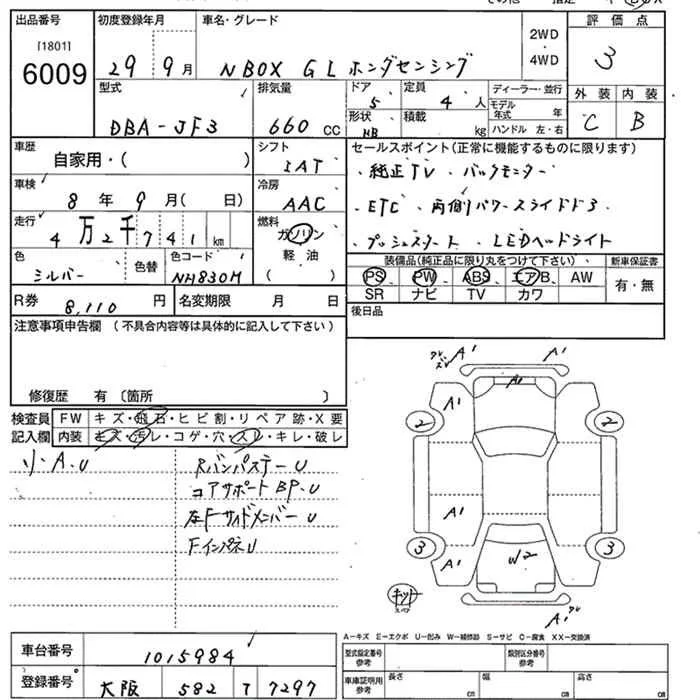 出品番号
[1801]
6009
初度登録年月
29 9月
車名・グレード
NBOX G L ホンダセンシング
2WD
・
4WD
評価点
3
外装 内装
C B
型式
DBA-JF3
排気量
660 CC
ドア
5
形状
HB
定員
4 人
積載
kg
ディーラー・並行
モデル
年式 年
ハンドル 左・右
車歴
自家用・( )
シフト
IAT
車検
8年 9月( 日)
冷房
AAC
走行
4万2千741km
燃料
ガソリン
軽油
( )
色
シルバー
色替
色コード
NH830M
セールスポイント(正常に機能するものに限ります)
・純正TV ・バックモニター
・ETC ・両側パワースライドドア
・プッシュスタート ・LEDヘッドライト
装備品(純正品に限り丸をつけて下さい)
PS PW ABS エアB AW
SR ナビ TV カワ
新車保証書
有・無
R券
8,110 円
名変期限 月 日
後日品
注意事項申告欄 (不具合内容等は具体的に記入して下さい)
修復歴 有〔箇所 〕
検査員
記入欄
FW キズ・飛石・ヒビ割・リペア跡・X要
内装 キズ・汚レ・コゲ・穴・スレ・キレ・破レ
リ・A.U
Rバンパステー U
コアサポート BP.U
左Fサイドメンバー U
Fインパネ U
A1 A1
A1
A1
2 2
A1
3 3
A1
W2
キット
A1
A-キズ E-エクボ U-凹み W-補修跡 S-サビ C-腐食 XX-交換済
車台番号
1015984
登録番号
大阪 582 T 7297
型式指定番号
参考
類別区分番号
参考
車庫証明用
参考
長さ
cm
幅
cm
高さ
cm